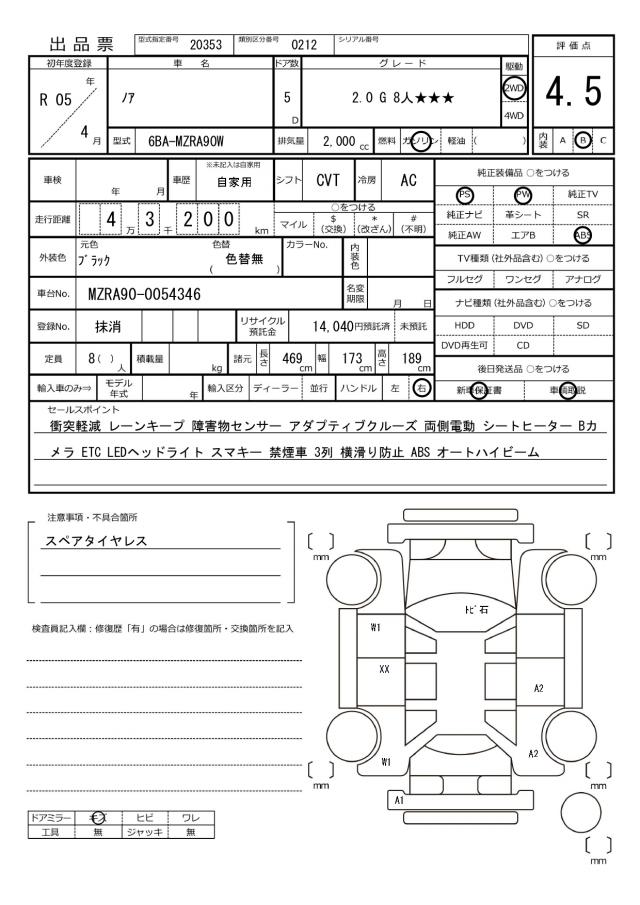 出品票 型式指定番号 20353 類別区分番号 0212 シリアル番号
評価点
4.5
内装 A B C
初年度登録 車名 ドア数 グレード 駆動
R 05 年 4 月 ノア 5 D 2.0 G 8人★★★ 2WD
4WD
型式 6BA-MZRA90W 排気量 2,000 cc 燃料 ガソリン 軽油 ( )
車検 年 月 車歴 ※未記入は自家用 自家用 シフト CVT 冷房 AC
走行距離 4 万 3 千 2 0 0 km
○をつける
マイル $ (交換) * (改ざん) # (不明)
外装色 元色 ブラック 色替 ( 色替無 ) カラーNo. 内装色
車台No. MZRA90-0054346 名変期限 月 日
登録No. 抹消 リサイクル預託金 14,040円預託済 未預託
定員 8( ) 人 積載量 kg 諸元 長さ 469 cm 幅 173 cm 高さ 189 cm
輸入車のみ⇒ モデル年式 年 輸入区分 ディーラー 並行 ハンドル 左 右
純正装備品 ○をつける
PS PW 純正TV
純正ナビ 革シート SR
純正AW エアB ABS
TV種類(社外品含む)○をつける
フルセグ ワンセグ アナログ
ナビ種類(社外品含む)○をつける
HDD DVD SD
DVD再生可 CD
後日発送品 ○をつける
新車保証書 車輌取説
セールスポイント
衝突軽減 レーンキープ 障害物センサー アダプティブクルーズ 両側電動 シートヒーター Bカ
メラ ETC LEDヘッドライト スマキー 禁煙車 3列 横滑り防止 ABS オートハイビーム
注意事項・不具合箇所
スペアタイヤレス
検査員記入欄：修復歴「有」の場合は修復箇所・交換箇所を記入
ドアミラー キズ ヒビ ワレ
工具 無 ジャッキ 無
〔 〕 mm
〔 〕 mm
トビ石
W1
XX
A2
W1
A2
〔 〕 mm
〔 〕 mm
A1
〔 〕 mm